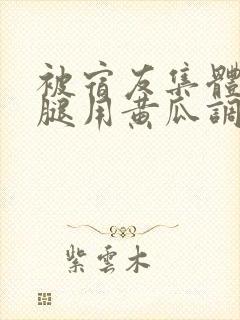 被宿友集體
腿用黄瓜調
紫雲木